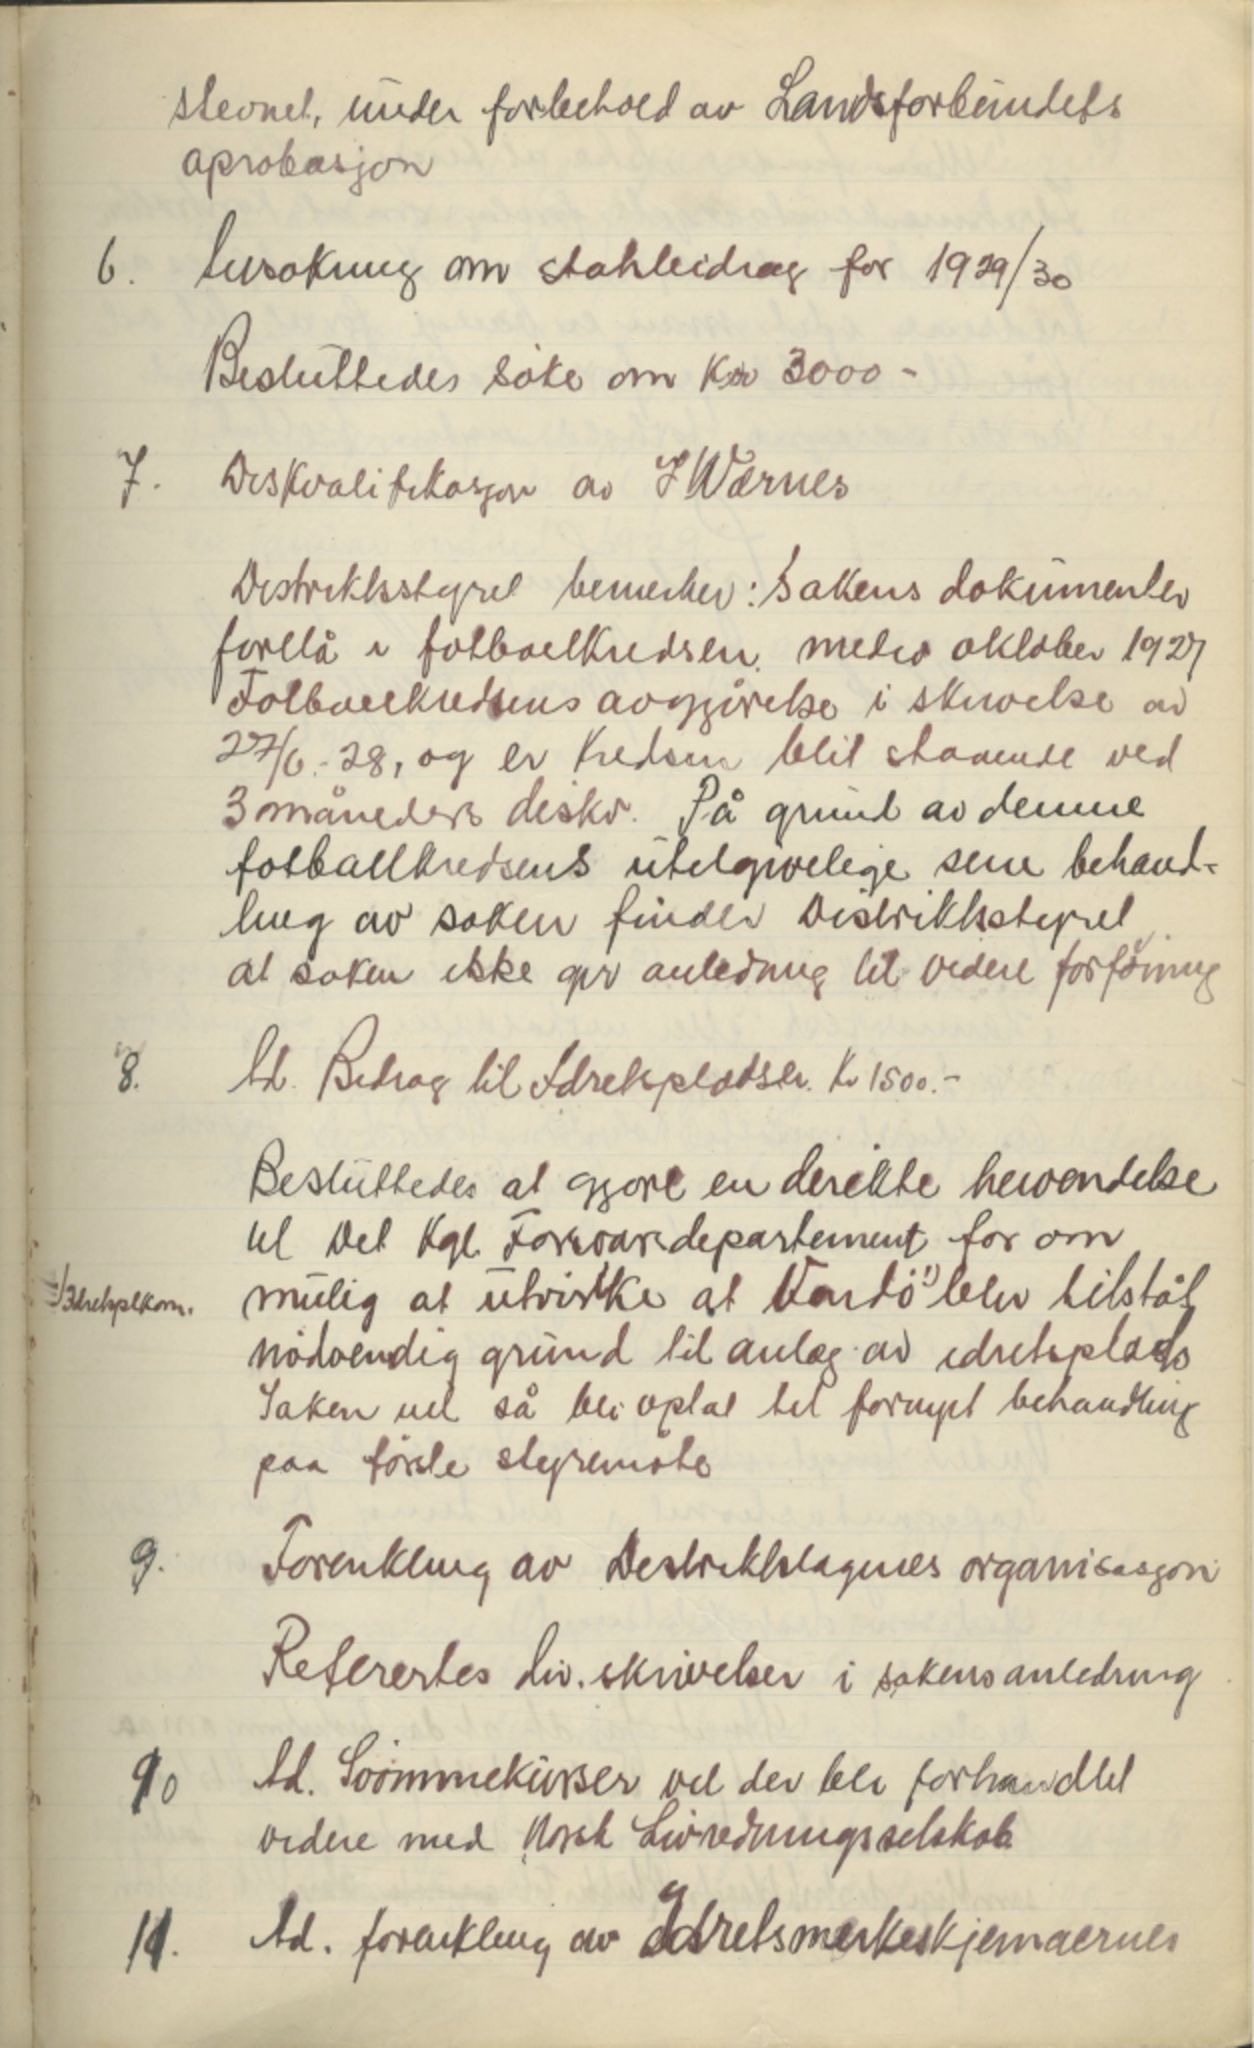 stevnet, under forbehold av Landsforbundets
aprobasjon
6. Ansøkning om statsbidrag for 1929/30
Besluttedes søke om Kr 3000 -
7. Diskvalifikasjon av J Wærnes
Distriktsstyret bemerker: Sakens dokumenter
forelå i fotballkredsen medio oktober 1927
Fotballkredsens avgjörelse i skrivelse av
27/6.-28, og er Kredsen blit staaende ved
3 måneders diskv. På grund av denne
fotballkredsens utilgivelige sene behand-
ling av saken finder Distriktsstyret
at saken ikke gir anledning til videre forføining
8. Ad. Bidrag til Idretspladser. Kr 1500.-
Besluttedes at gjøre en direkte henvendelse
til Det Kgl. Forsvarsdepartement for om
mulig at utvirke at Vardö 1) blev tilståt
1) Idretsplkom.
nödvendig grund til anlæg av idretsplads
Saken vil så bli optat til fornyet behandling
paa første styremöte
9. Forenkling av Distriktslagenes organisasjon
Referertes div. skrivelser i sakens anledning
10 Ad. Svömmekurser vil der bli forhandlet
videre med Norsk Livredningsselskab
11. Ad. forenkling av Idretsmerkeskjemaernes